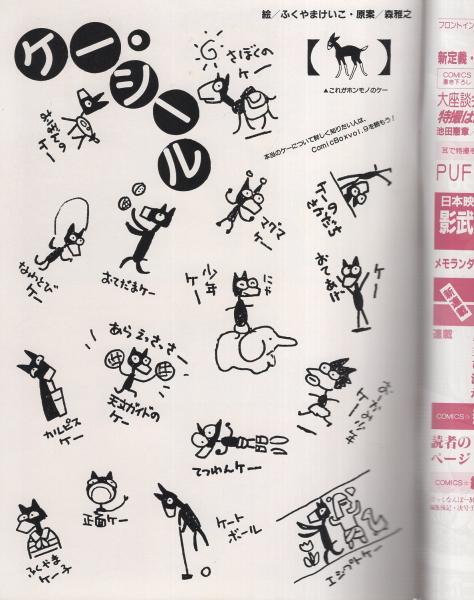 絵／ふくやまけいこ・原案／森雅之
ケー・シール
【】
▲これがホンモノのケー
本当のケーについて詳しく知りたい人は、
ComicBoxvol.9を読もう！
さばくの
ケー
なわとび
ケー
おてだまケー
マグマ
ケー
ケーの
さかだち
おてあげ
ケー
少年
ケー
にゃ
あらえっさっさー
カルピス
ケー
天文ガイドの
ケー
てつめんケー
ふくやま
ケー子
正面ケー
ケート
ボール
エジプトケー
フロントイン
新定義・
COMICS
書き下ろし
大座談会
特撮は
池田憲章
耳で特撮を
PUF
日本映
影武
メモランダ
連載
COMICS☆
読者の
ページ
COMICS☆